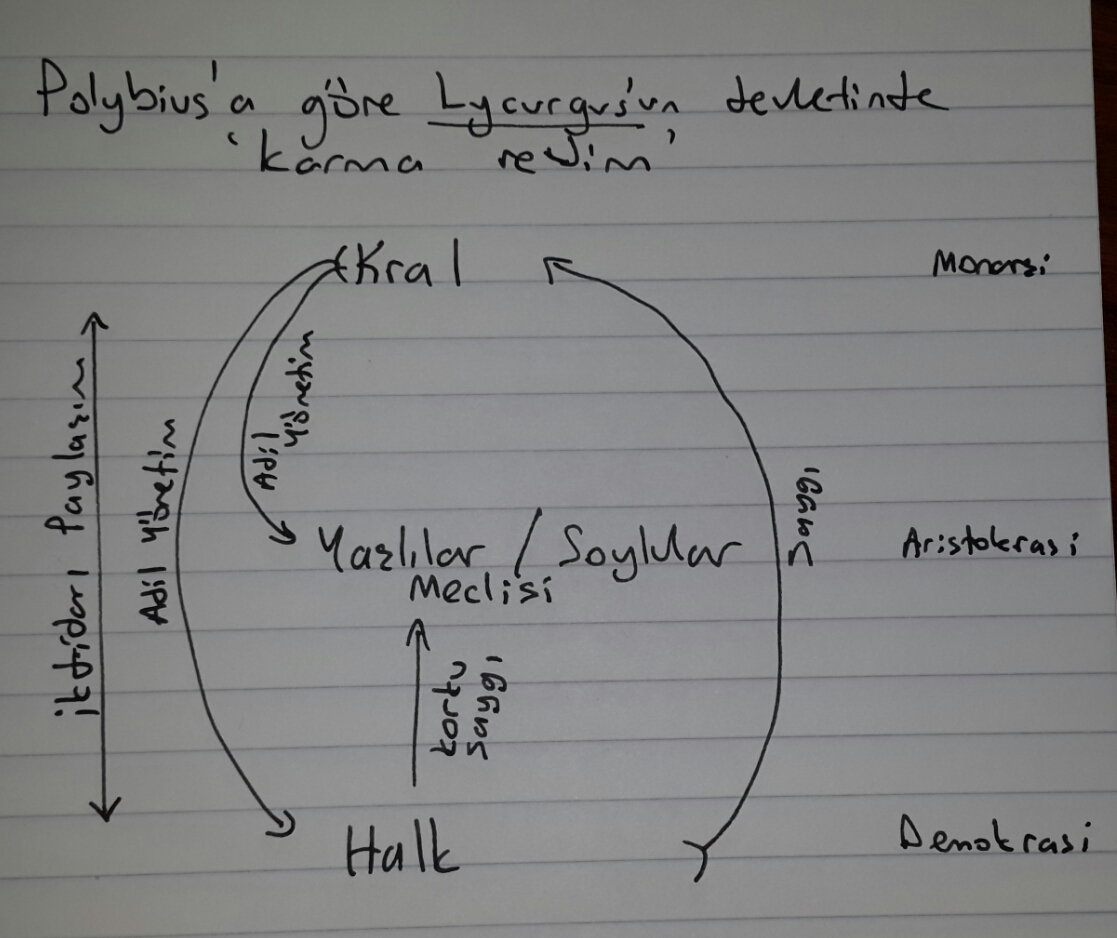 Polybius'a göre Lycurgus'un devletinde
'karma rejim'
Kral
Monarşi
İktidarı Paylaşım
Adil Yönetim
Adil
Yönetim
Saygı
Yaşlılar / Soylular
Meclisi
Aristokrasi
korku
saygı
Halk
Demokrasi